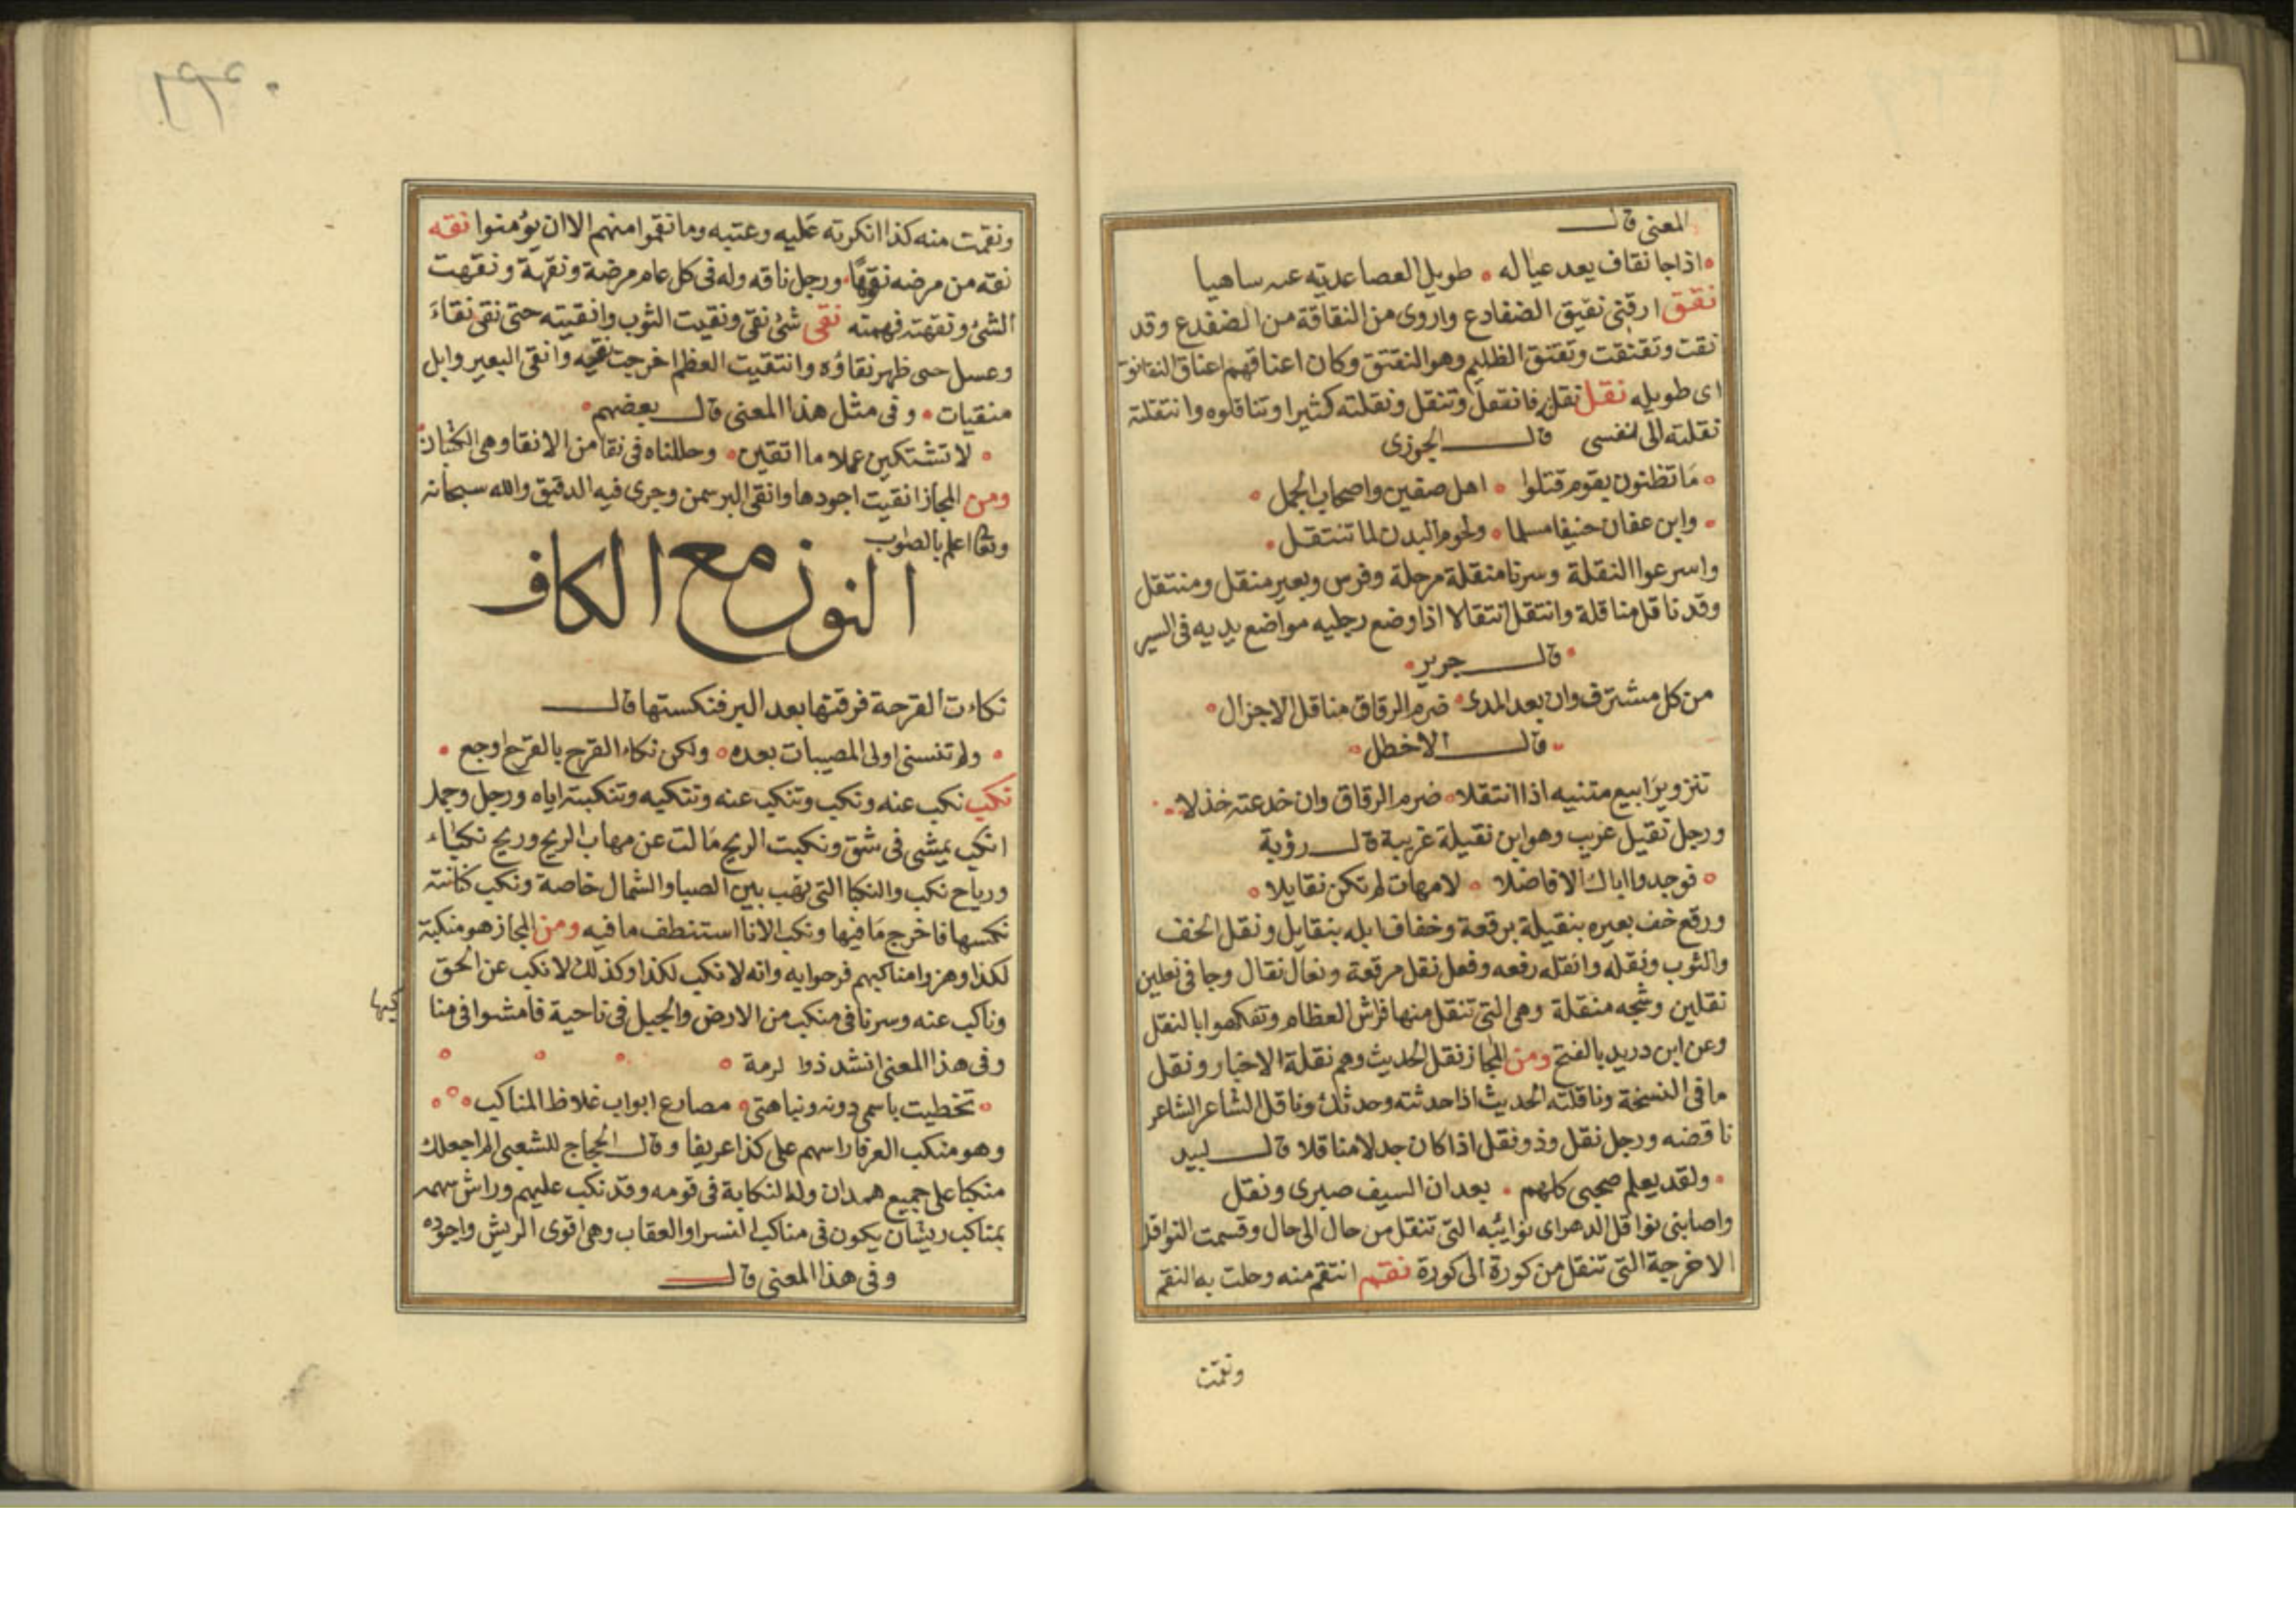 المعنى قال
اذا جا نقاف يعد عياله طويل العصا عديته عن ساهيا
نقق ارقنى نقيق الضفادع واروى من النقاقة من الضفدع وقد
نقت ونقنقت ونقنق الظليم وهو النقنق وكان اعناقهم اعناق النقانق
اى طويله نقل نقلته فانتقل وتنقل ونقلته كثيرا وتناقلوه وانتقلته
نقلته الى نفسى قال الجوزى
ما تظنون بقوم قتلوا اهل صفين واصحاب الجمل
وابن عفان حنيفا مسلما ولحوم البدن لما تنتقل
واسرعوا النقلة وسرنا منقلة مرحلة وفرس وبعير منقل ومنتقل
وقد ناقل مناقلة وانتقل انتقالا اذا وضع رجليه مواضع يديه فى السير
قال جرير
من كل مشترف وان بعد المدى ضرم الرقاق مناقل الاجزال
قال الاخطل
تنزو يرابيع متنيه اذا انتقلا ضرم الرقاق وان خدعته خذلا
ورجل نقيل غريب وهو ابن نقيلة غريبة قال رؤبة
فوجدوا اباك الافاضلا لامهات لم تكن نقايلا
ورقع خف بعيره بنقيلة برقعة وخفاف ابله بنقايل ونقل الخف
والثوب ونقله وانقله رفعه وفعل نقل مرقعة ونعال نقال وجا فى نعلين
نقلين وشجه منقلة وهى التى تنقل منها فراش العظام وتفكهوا بالنقل
وعن ابن دريد بالفتح ومن المجاز نقل الحديث وهم نقلة الاخبار ونقل
ما فى النسخة وناقلته الحديث اذا حدثته وحدثك وناقل الشاعر الشاعر
ناقضه ورجل نقل وذو نقل اذا كان جدلا مناقلا قال لبيد
ولقد يعلم صحبى كلهم بعدان السيف صبرى ونقل
واصابنى نواقل الدهر اى نوائبه التى تنقل من حال الى حال وقسمت النواقل
الاخرجة التى تنقل من كورة الى كورة نقم انتقم منه وحلت به النقم
ونقمت
ونقمت منه كذا انكرته عليه وعتبه وما نقموا منهم الا ان يؤمنوا نقه
نقه من مرضه نقوها ورجل ناقه وله فى كل عام مرضة ونقهة ونقهت
الشئ ونقهته فهمته نقى شئ نقى ونقيت الثوب وانقيته حتى نقى نقاء
وعسل حى ظهر نقاؤه وانتقيت العظم اخرجت نقيه وانقى البعير وابل
منقيات وفى مثل هذا المعنى قال بعضهم
لا تشتكين عملا ما انقين وحللناه فى نقا من الانقا وهى الكثبان
ومن المجاز انقيت اجودها وانقى البر سمن وجرى فيه الدقيق والله سبحانه
وتعالى اعلم بالصواب
النون مع الكاف
نكاءت القرحة فرقتها بعد البر فنكستها قال
ولم تنسنى اولى المصيبات بعده ولكن نكاء القرح بالقرح اوجع
نكب نكب عنه ونكب وتنكب عنه وتنكبه وتنكبته اياه ورجل وجمل
انكب يمشى فى شق ونكبت الريح مالت عن مهاب الريح وريح نكباء
ورياح نكب والنكبا التى تهب بين الصبا والشمال خاصة ونكب كنانته
نكسها فاخرج ما فيها ونكب الانا استنطف ما فيه ومن المجاز هو منكبة
لكذا وهزوا مناكبهم فرحوا به وانه لا نكب لكذا وكذلك لا نكب عن الحق
وناكب عنه وسرنا فى منكب من الارض والجبل فى ناحية فامشوا فى منا
كبها
وفى هذا المعنى انشد ذوا لرمة
تخطيت باسمى دونه ونباهتى مصارع ابواب غلاظ المناكب
وهو منكب العرفا راسهم على كذا عريفا وقال الحجاج للشعبى الم اجعلك
منكبا على جميع همدان وله النكابة فى قومه وقد نكب عليهم وراش سهمه
بمناكب ريشان يكون فى مناكب النسر او العقاب وهى اقوى الريش واجوده
وفى هذا المعنى قال